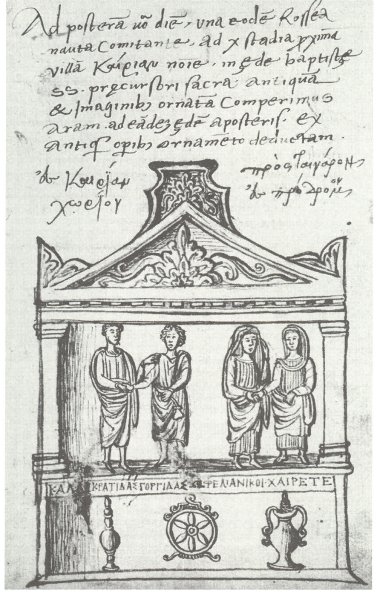 Ad posterā uō diē, una eodē Rosseā
nauta Comitante, ad x stadia pxima
uillā Κούριαν noie, in ęde baptistę
ss. pręcursori sacra Antiquā
& Imaginibus ornatā Comperimus
Aram. ad eādē ędē aposteris. ex
Antiqs opibus ornamēto deductam.
Κούριαν
χωρίον
πρὸς
ΚΑΛ ΚΡΑΤΙΔΑΣ ΓΟΡΓΙΔΑΣ ΡΕΛΙΑΝΙΚΟΙ·ΧΑΙΡΕΤΕ